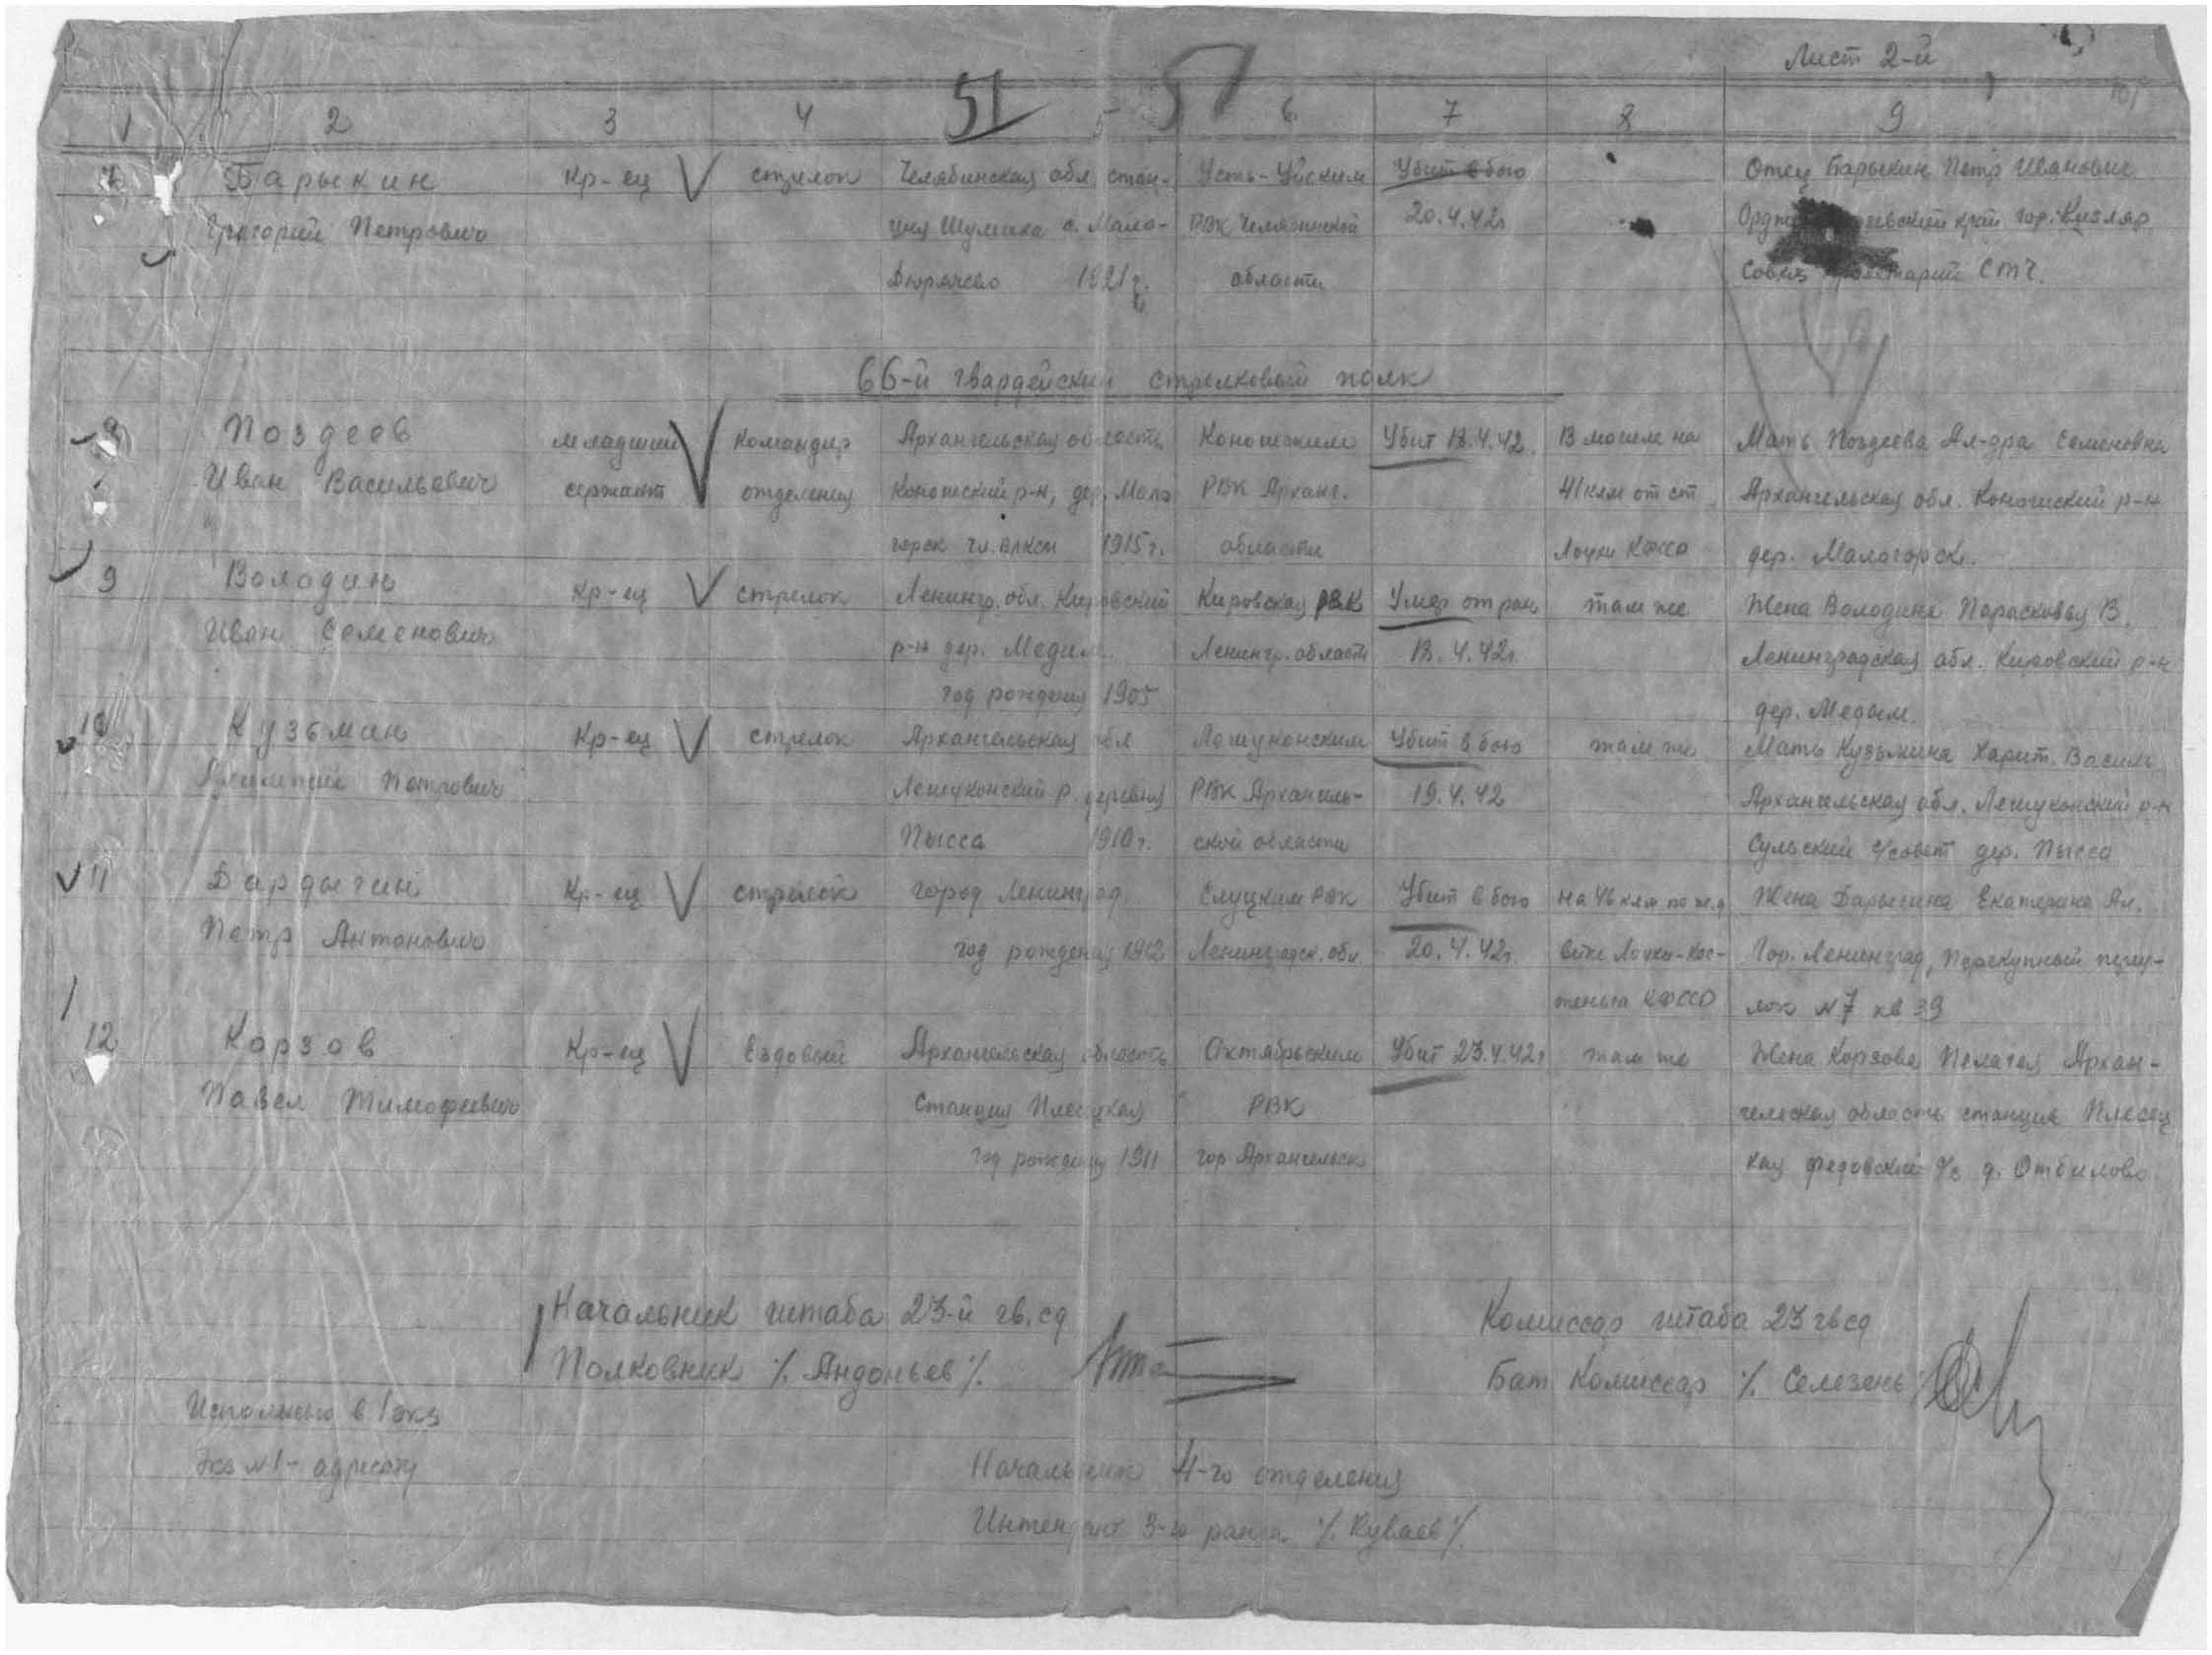 Лист 2-й
51 51
1 2 3 4 5 6 7 8 9
7 Барыкин Кр-ец стрелок Челябинская обл. стан- Усть-Уйским Убит в бою Отец Барыкин Петр Иванович
Григорий Петрович ция Шумиха с. Мало- РВК Челябинской 20.4.42г край гор. Кизляр
Дюрягево 1921г. области Совхоз СТЧ.
66-й гвардейский стрелковый полк
8 Поздеев младший Командир Архангельская область Коношским Убит 18.4.42 В могиле на Мать Поздеева Ал-дра Семеновна
Иван Васильевич сержант отделения Коношский р-н, дер. Мало РВК Арханг. 41 клм от ст Архангельская обл. Коношский р-н
горск чл. ВЛКСМ 1915г. области Лоухи КФССР дер. Малогорск.
9 Володин Кр-ец стрелок Ленингр. обл. Кировский Кировская РВК Умер от ран там же Жена Володина Парасковья В.
Иван Семенович р-н дер. Ленингр. области 18.4.42г. Ленинградская обл. Кировский р-н
год рождения 1905 дер.
10 Кузьмин Кр-ец стрелок Архангельская обл Лешуконским Убит в бою там же Мать Кузьмина Харит. Василь
Петрович Лешуконский р. деревня РВК Архангель- 19.4.42 Архангельская обл. Лешуконский р-н
Пысса 1910г. ской области Сульский с/совет дер. Пысса
11 Дардыгин Кр-ец стрелок город Ленинград Слуцким РВК Убит в бою на 46 клм по ж.д Жена Дарыгина Екатерина Ал.
Петр Антонович год рождения 1912 Ленинградск. обл. 20.4.42г. ветке Лоухи-Кес- Гор. Ленинград, Перекупный переу-
теньга КФССР лок №7 кв 39
12 Корзов Кр-ец Ездовый Архангельская область Октябрьским Убит 23.4.42г там же Жена Корзова Пелагея Архан-
Павел Тимофеевич Станция Плесецкая РВК гельская область станция Плесец
год рождения 1911 гор Архангельск кая Федовский с/с д.
Начальник штаба 23-й гв. сд Комиссар штаба 23 гвсд
Полковник /. Андоньев /. Бат Комиссар /. Селезень
Исполнено в 1 экз
Экз №1 - адресату
Начальник 4-го отделения
Интендант 3-го ранга /. Куваев /.